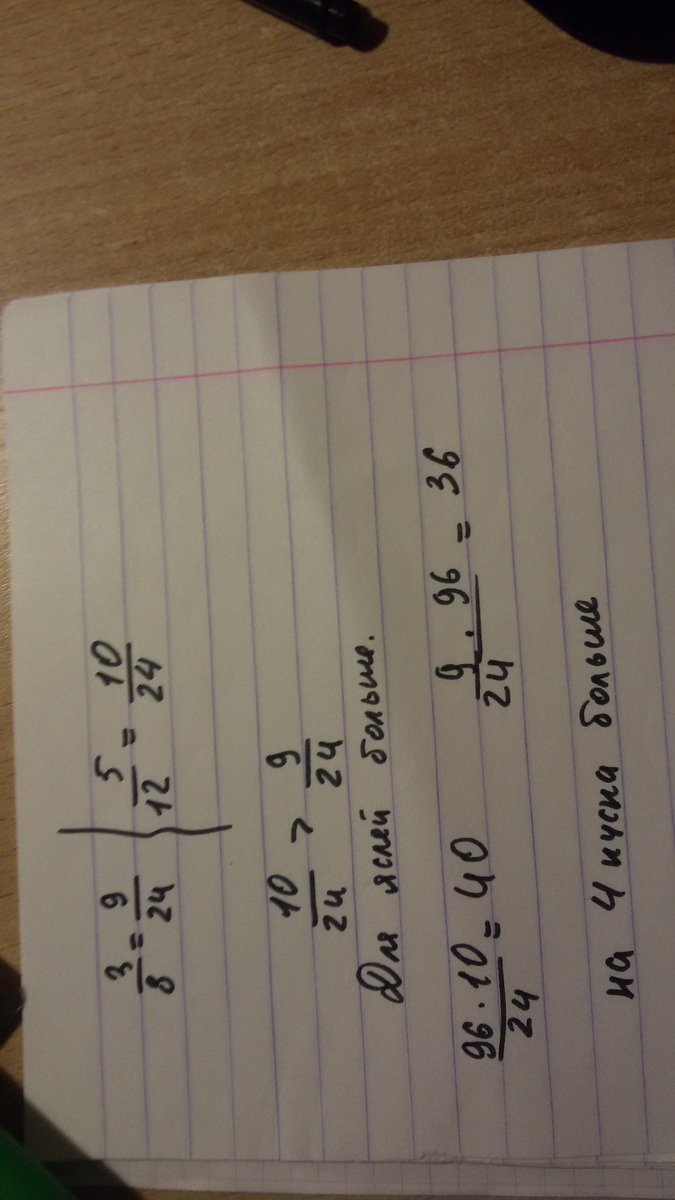 3/8 = 9/24 } 5/12 = 10/24
10/24 > 9/24
Для яслей больше.
96 · 10/24 = 40 9 · 96/24 = 36
на 4 куска больше